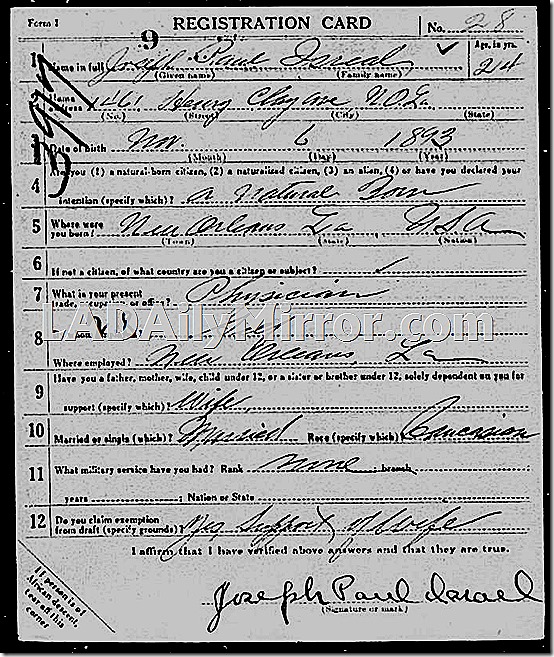 Form 1 REGISTRATION CARD No. 28
9
1 Name in full Joseph Paul Israel Age, in yrs. 24
(Given name) (Family name)
Home address 1461 Henry Clay ave N.O. La
(No.) (Street) (City) (State)
Date of birth Nov. 6 1893
(Month) (Day) (Year)
4 Are you (1) a natural-born citizen, (2) a naturalized citizen, (3) an alien, (4) or have you declared your
intention (specify which)? a natural Born
5 Where were you born? New Orleans La USA
(Town) (State) (Nation)
6 If not a citizen, of what country are you a citizen or subject?
7 What is your present trade, occupation or office? Physician
LADAilyMirror.com
8
Where employed? New Orleans La
9 Have you a father, mother, wife, child under 12, or a sister or brother under 12, solely dependent on you for
support (specify which)? Wife
10 Married or single (which)? Married Race (specify which)? Caucasian
11 What military service have you had? Rank none branch
years Nation or State
12 Do you claim exemption from draft (specify grounds)? Yes, Support of Wife
I affirm that I have verified above answers and that they are true.
Joseph Paul Israel
(Signature or mark)
If person is of
African descent,
tear off this
corner